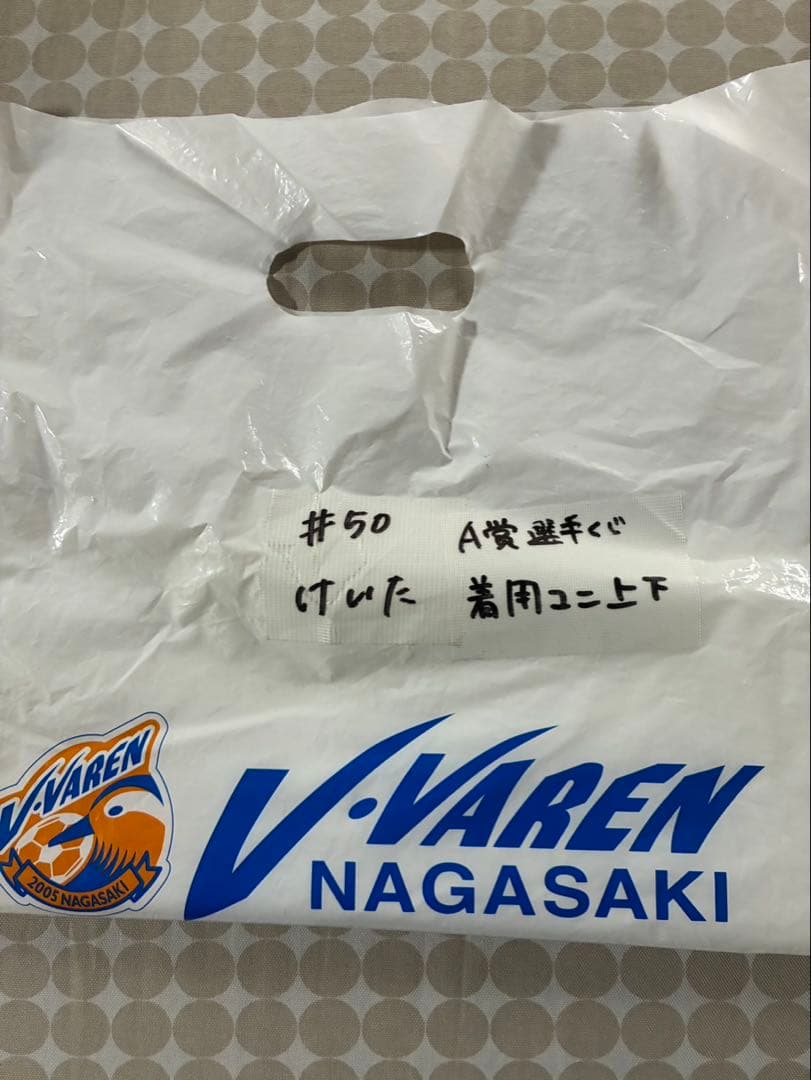 #50 A賞選手くじ
けいた 着用ユニ上下
V・VAREN
V・VAREN
NAGASAKI
2005 NAGASAKI